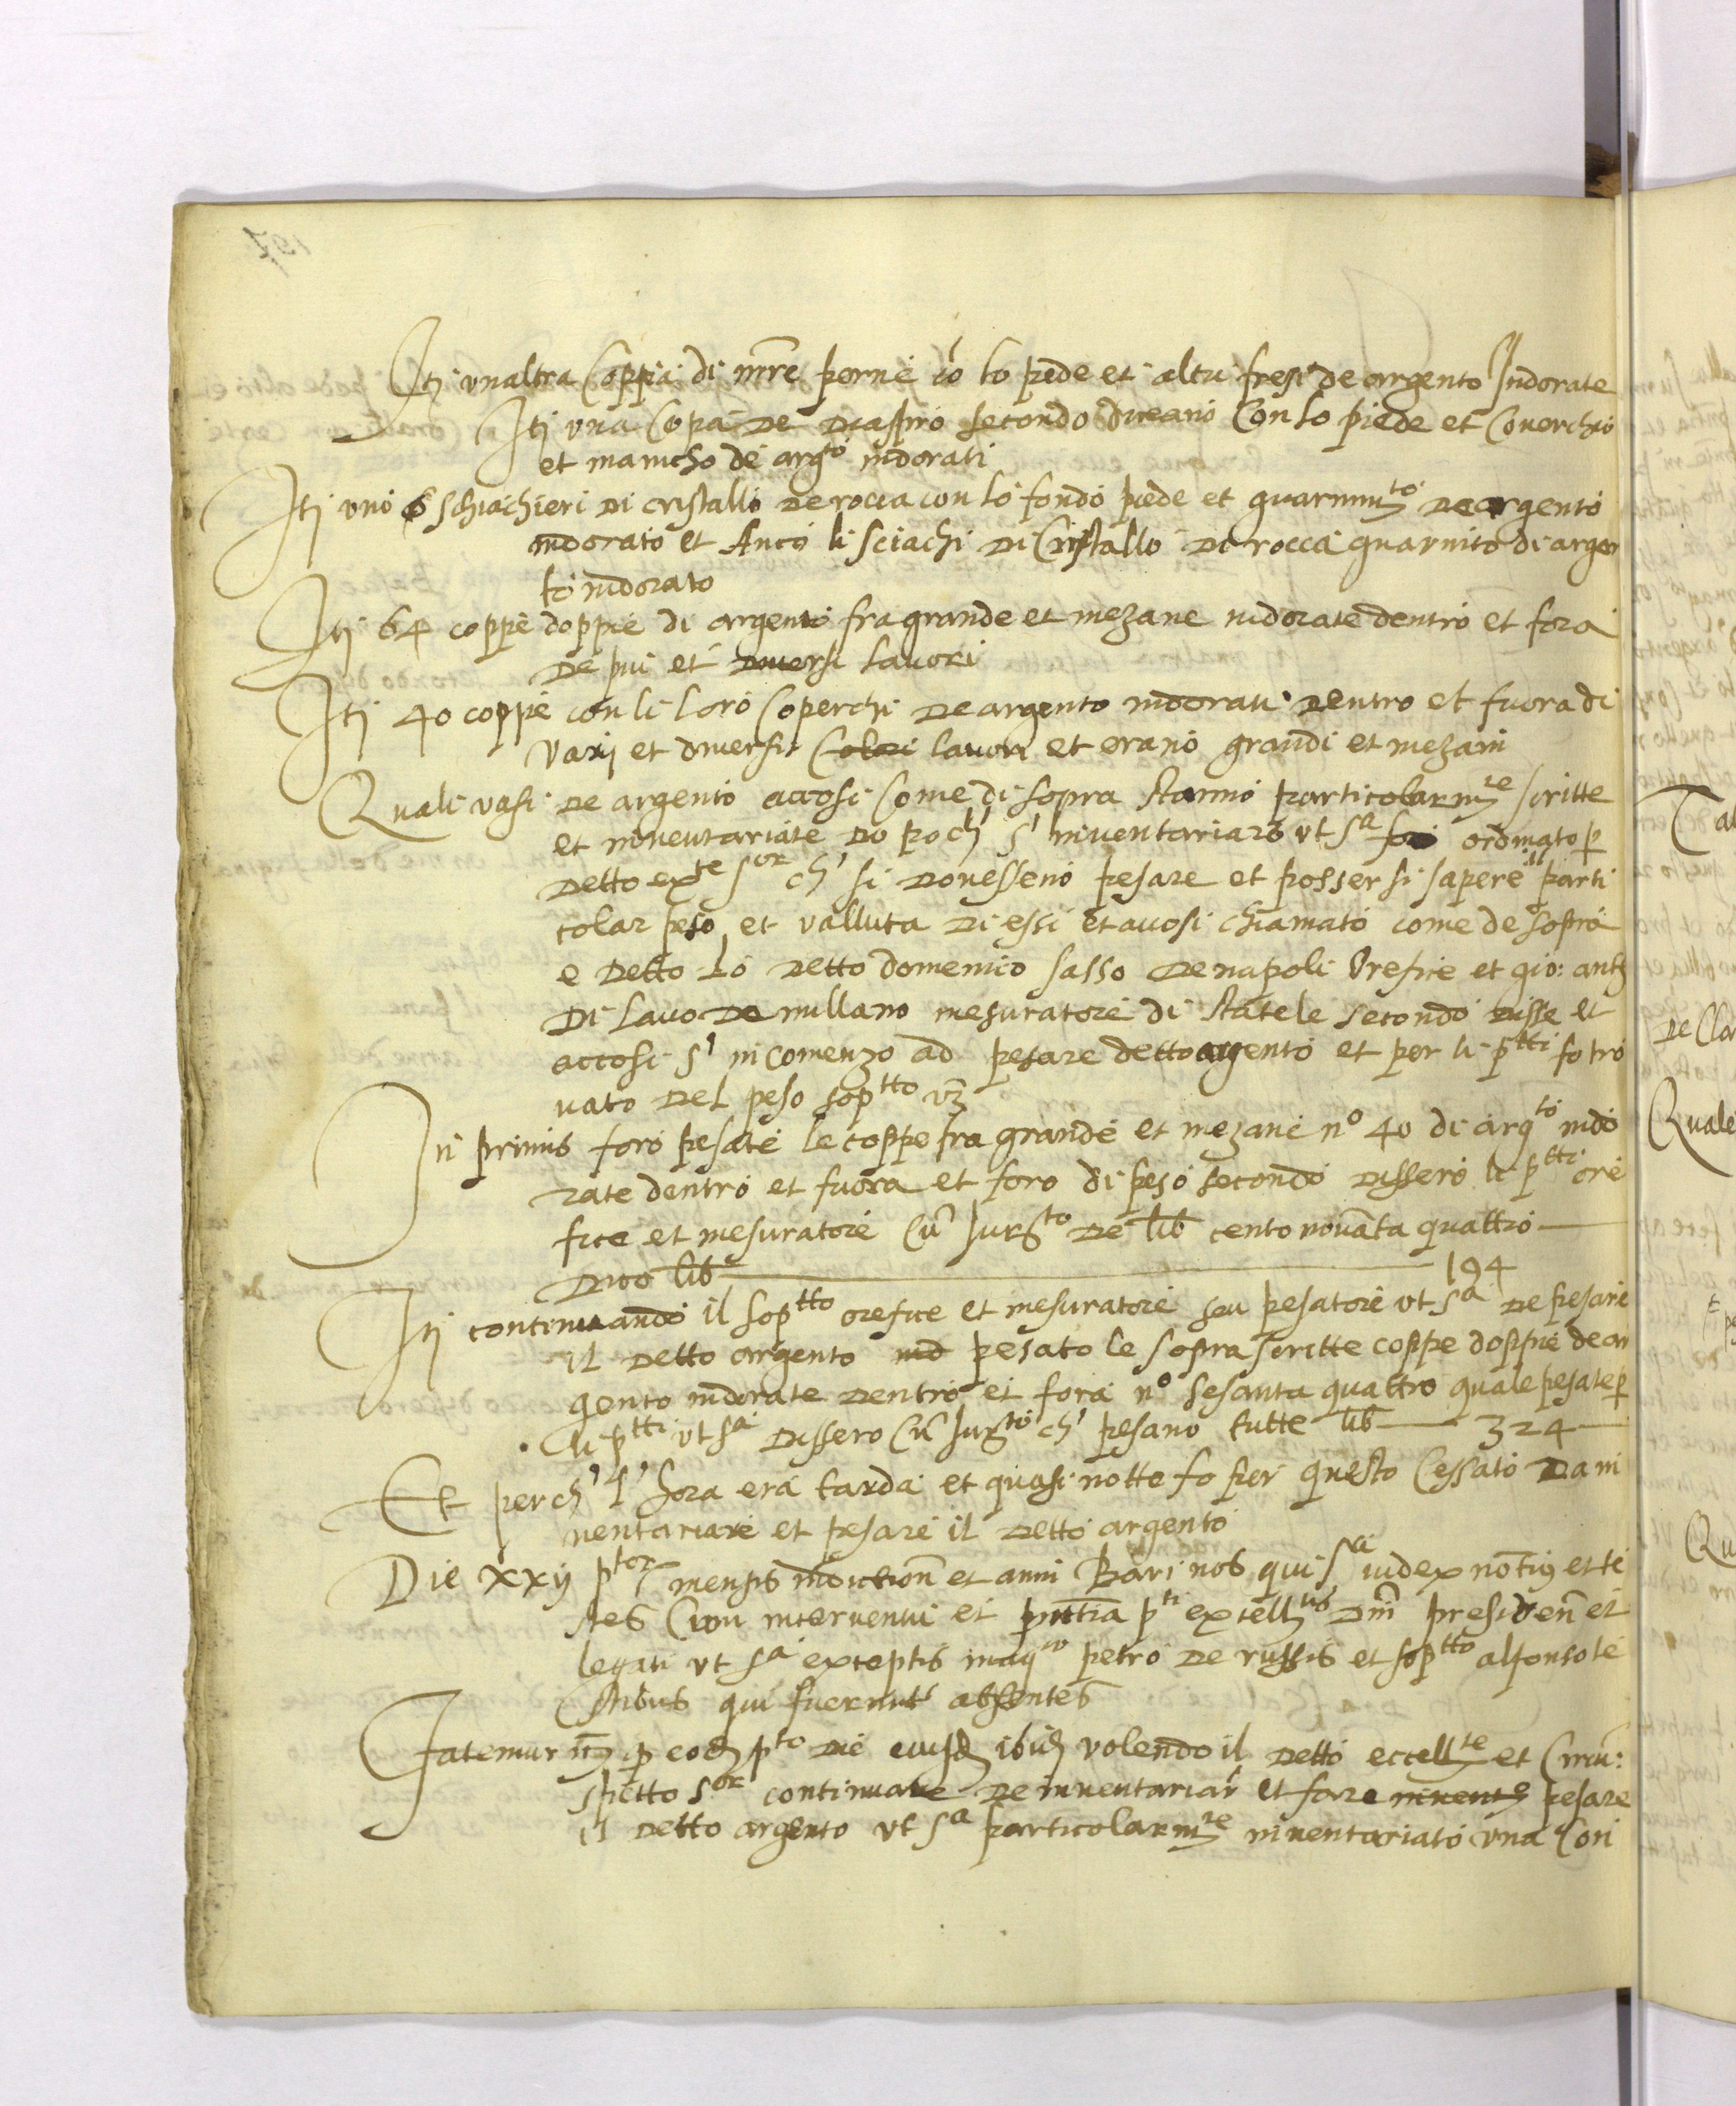 Itj unaltra Coppa di mre perne co lo pede et altri fresi de argento Indorate
Itj una Copa de Diaspro secondo diceano Con lo piede et Coverchio
et manicho de argto indorati
Itj uno schiachieri di cristallo de rocca con lo fondo piede et guarnimto de argento
indorato et Anco li sciachi di Cristallo di rocca guarnito di argen
to indorato
Itj 64 coppe doppie di argento fra grande et mezane indorate dentro et fora
de piu et diversi lavori
Itj 40 coppe con li loro Coperchi de argento indorati dentro et fuora di
varij et diversi Colori lavori et erano grandi et mezani
Quali vasi de argento accosi Come di sopra stanno particolarmte scritte
et inventariate do poch' s' inventariaro ut sa ordinato p
detto exte sor ch' si dovesseno pesare et possersi sapere il parti
colar peso et valluta di essi et accosi chiamato come de sopra
e detto lo detto domenico sasso de napoli Orefice et gio: anto
di Lavo de millano mesuratore di statele secondo disse et
accosi s' incomenzo ad pesare detto argento et per li ptti fo tro
vato del peso soptto vz
In primis foro pesate le coppe fra grande et mezane no 40 di argto indo
rate dentro et fuora et foro di peso secondo dissero li ptti ore
fice et mesuratore Cu Jurto de lib cento novata quattro
Dico lib 194
Itj continuando il soptto orefice et mesuratore seu pesatore ut sa de pesare
il detto argento ind pesato le sopra scritte coppe doppie de ar
gento indorate dentro et fora no sesanta quattro quale pesate p
li ptti ut sa dissero Cu Jurto ch' pesano tutte lib 324
Et perch' l' hora era tarda et quasi notte fo per questo Cessato da in
ventariare et pesare il detto argento
Die xxij ptor mensis indiction et anni Bari nos qui sa iudex notius et te
stes Cum interventu et pntia pti excellmi Dni presiden et
legati ut sa exceptis magco petro de russis et soptto alfonso te
stibus qui fuerunt absentes
Fatemur p eod pto die eiusd ibid volendo il detto eccellte et Circu:
spetto sor continuare de inventariar et fare invent pesare
il detto argento ut sa particolarmte inventariato una Con